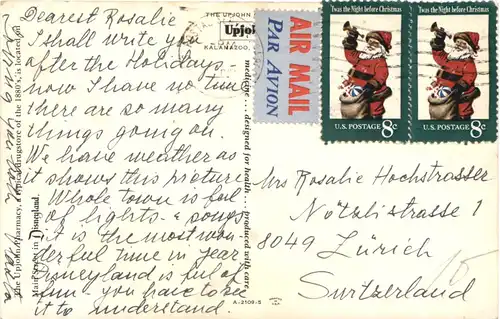 Dearest Rosalie
I shall write you
after the Holidays -
now I have no time
there are so many
things going on.
We have weather as
it shows this picture
Whole town is full
of lights - & songs
it is the most won-
derful time in year
Disneyland is full of
fun - you have to see
it to understand.
THE UPJOHN
Upjohn
KALAMAZOO,
The Upjohn Pharmacy, a typical drugstore of the 1880's, is located on
Main Street in Disneyland.
medicine... designed for health... produced with care.
A-2109-S
AIR MAIL
PAR AVION
'Twas the Night before Christmas
U.S. POSTAGE 8c
'Twas the Night before Christmas
U.S. POSTAGE 8c
Mrs Rosalie Hochstrasser
Nötzlistrasse 1
8049 Zürich
Suitzerland